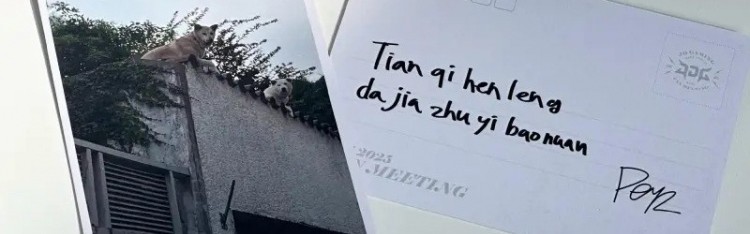 Tian qi hen leng
da jia zhu yi bao nuan
2025
MEETING